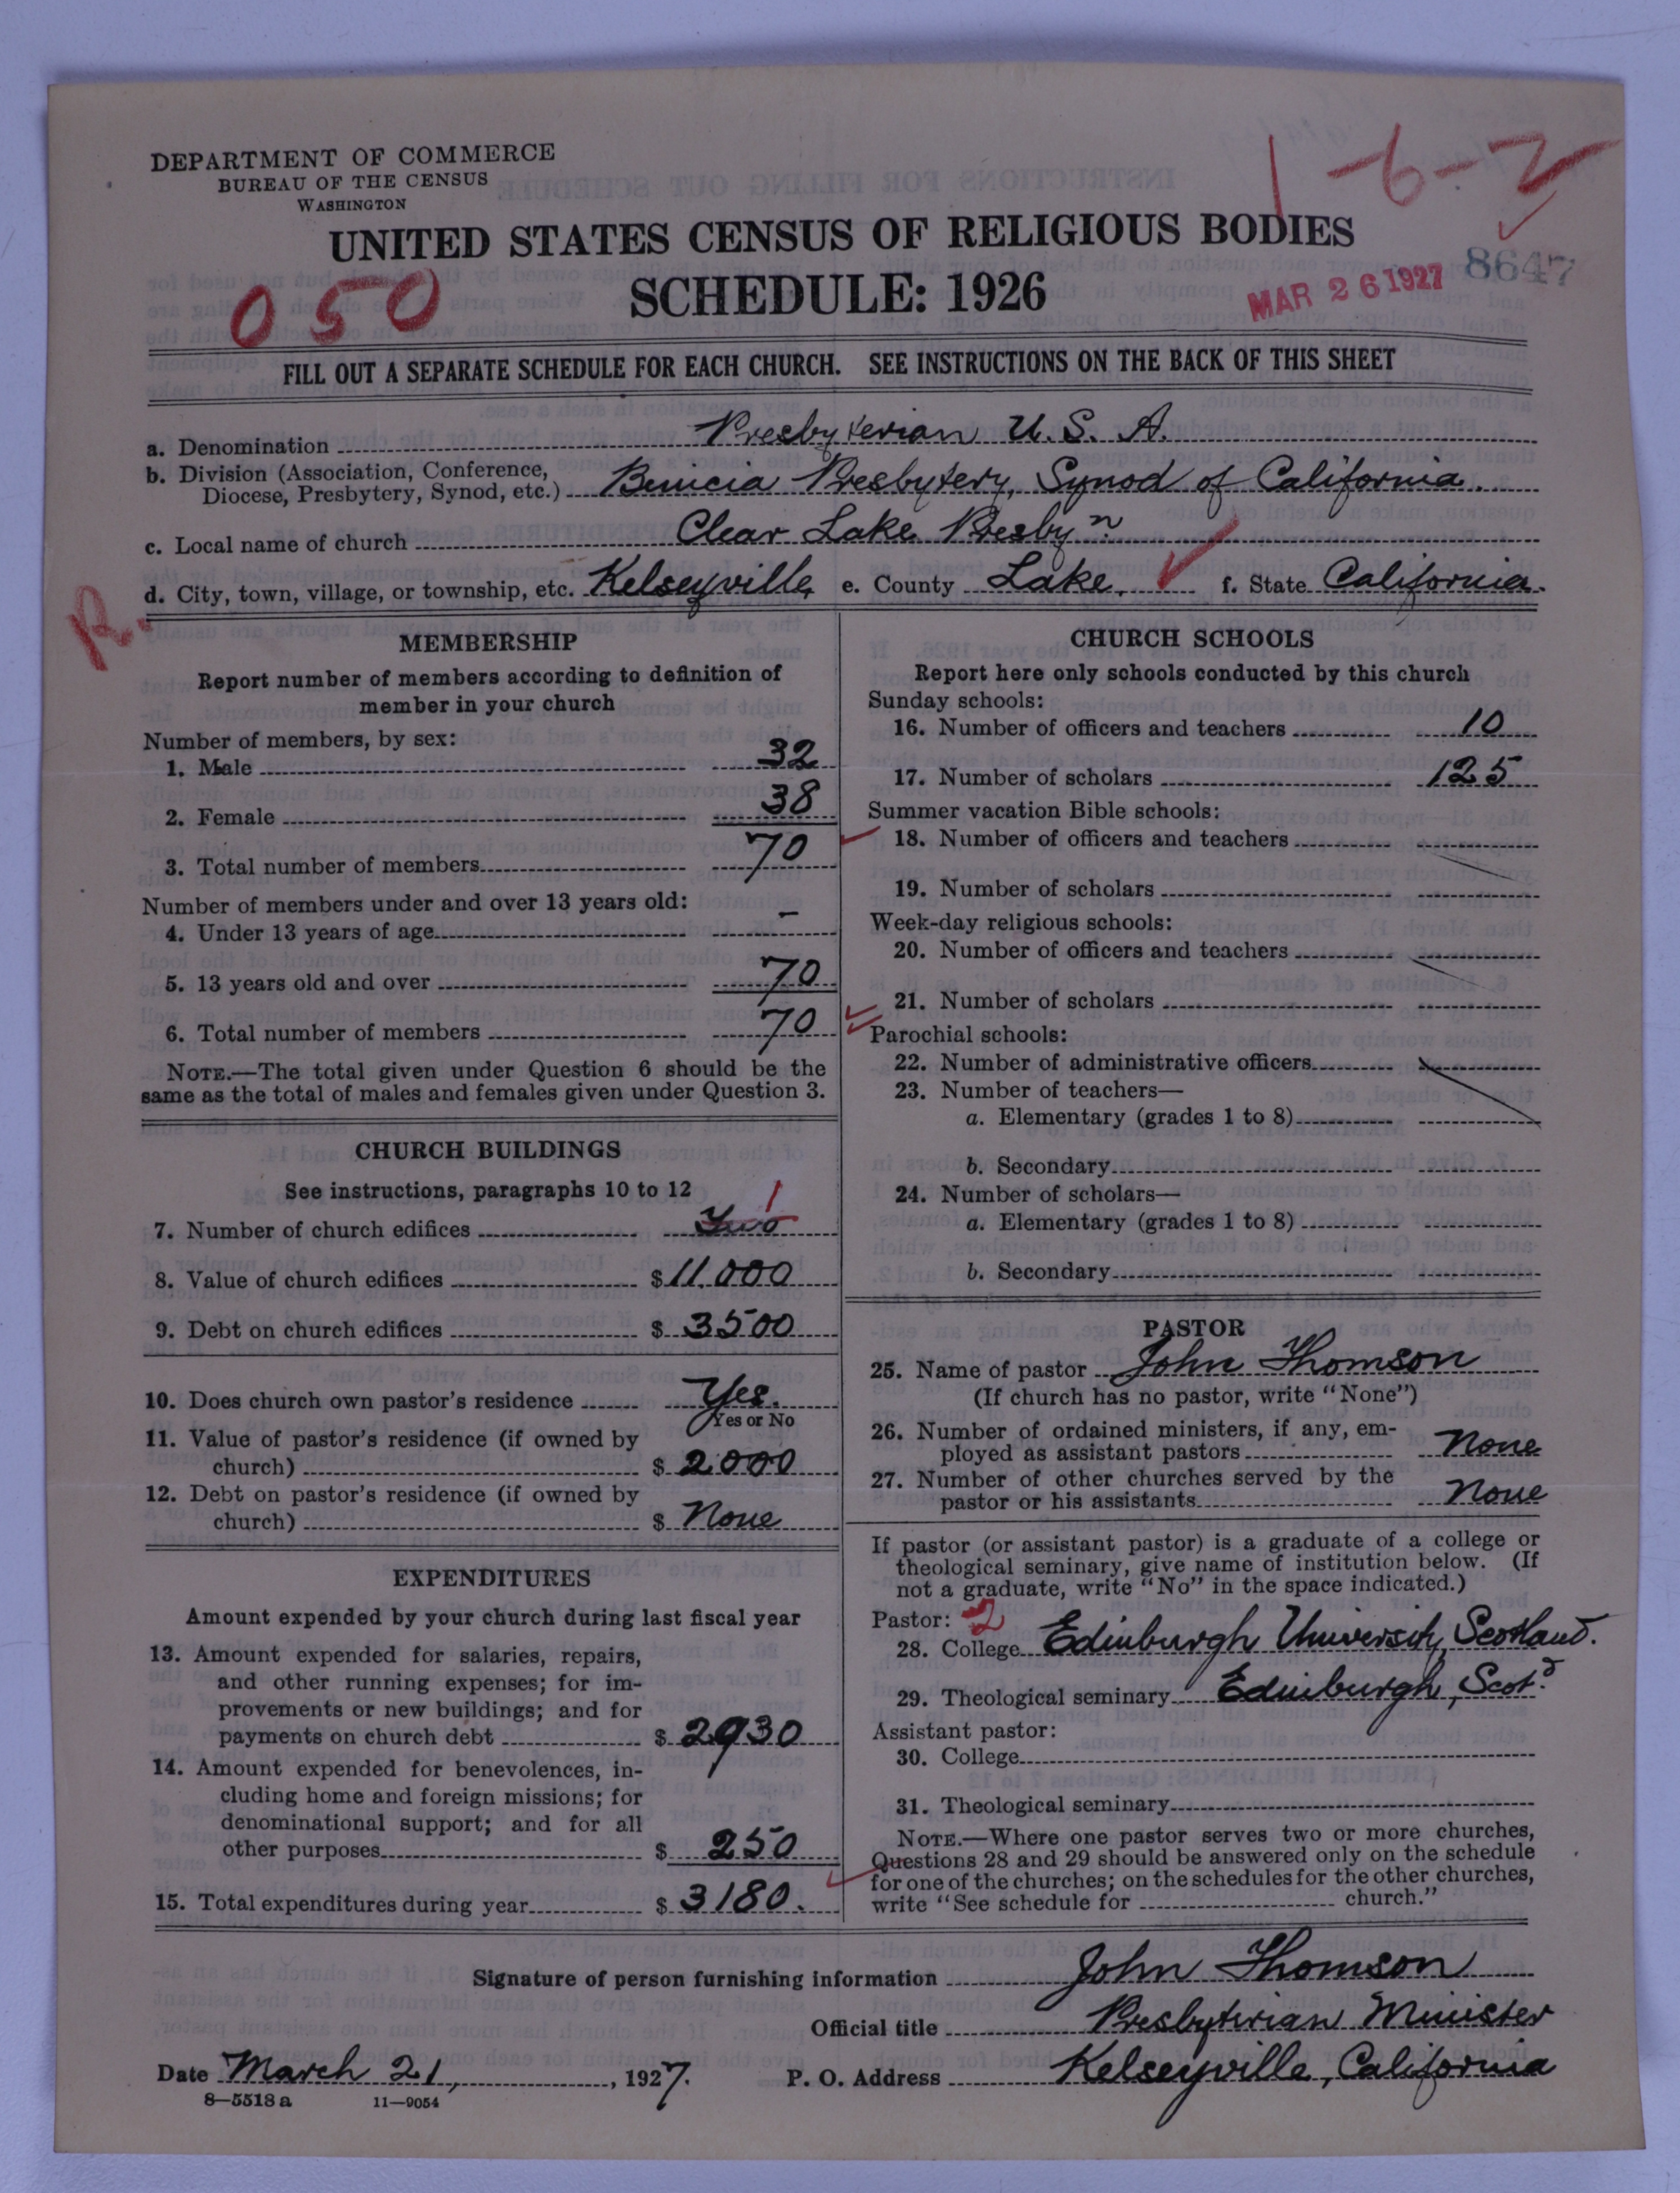 DEPARTMENT OF COMMERCE
BUREAU OF THE CENSUS
WASHINGTON
1-6-2
UNITED STATES CENSUS OF RELIGIOUS BODIES
SCHEDULE: 1926
050
MAR 26 1927
8647
FILL OUT A SEPARATE SCHEDULE FOR EACH CHURCH. SEE INSTRUCTIONS ON THE BACK OF THIS SHEET
a. Denomination Presbyterian U.S.A.
b. Division (Association, Conference,
Diocese, Presbytery, Synod, etc.) Benicia Presbytery, Synod of California.
c. Local name of church Clear Lake Presbyn.
d. City, town, village, or township, etc. Kelseyville, e. County Lake. f. State California.
R.
MEMBERSHIP
Report number of members according to definition of
member in your church
Number of members, by sex:
1. Male 32
2. Female 38
3. Total number of members 70
Number of members under and over 13 years old:
4. Under 13 years of age –
5. 13 years old and over 70
6. Total number of members 70
NOTE.—The total given under Question 6 should be the
same as the total of males and females given under Question 3.
CHURCH BUILDINGS
See instructions, paragraphs 10 to 12
7. Number of church edifices Two 1
8. Value of church edifices $11.000
9. Debt on church edifices $ 3500
10. Does church own pastor's residence Yes.
Yes or No
11. Value of pastor's residence (if owned by
church) $ 2000
12. Debt on pastor's residence (if owned by
church) $ None
EXPENDITURES
Amount expended by your church during last fiscal year
13. Amount expended for salaries, repairs,
and other running expenses; for im-
provements or new buildings; and for
payments on church debt $ 2930
14. Amount expended for benevolences, in-
cluding home and foreign missions; for
denominational support; and for all
other purposes $ 250
15. Total expenditures during year $ 3180.
CHURCH SCHOOLS
Report here only schools conducted by this church
Sunday schools:
16. Number of officers and teachers 10
17. Number of scholars 125
Summer vacation Bible schools:
18. Number of officers and teachers
19. Number of scholars
Week-day religious schools:
20. Number of officers and teachers
21. Number of scholars
Parochial schools:
22. Number of administrative officers
23. Number of teachers—
a. Elementary (grades 1 to 8)
b. Secondary
24. Number of scholars—
a. Elementary (grades 1 to 8)
b. Secondary
PASTOR
25. Name of pastor John Thomson
(If church has no pastor, write "None")
26. Number of ordained ministers, if any, em-
ployed as assistant pastors None
27. Number of other churches served by the
pastor or his assistants None
If pastor (or assistant pastor) is a graduate of a college or
theological seminary, give name of institution below. (If
not a graduate, write "No" in the space indicated.)
Pastor: 2
28. College Edinburgh University, Scotland.
29. Theological seminary Edinburgh, Scotd.
Assistant pastor:
30. College
31. Theological seminary
NOTE.—Where one pastor serves two or more churches,
Questions 28 and 29 should be answered only on the schedule
for one of the churches; on the schedules for the other churches,
write "See schedule for church."
Signature of person furnishing information John Thomson
Official title Presbyterian Minister
Date March 21, , 1927. P. O. Address Kelseyville, California
8—5518 a 11—9054